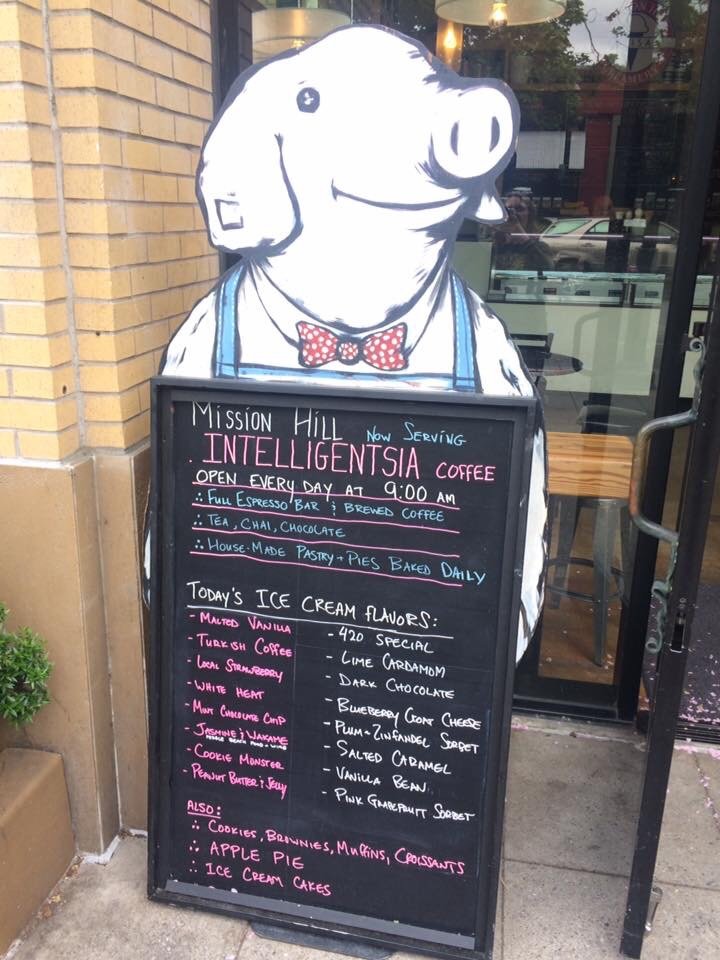 Mission Hill
Now Serving
INTELLIGENTSIA COFFEE
OPEN EVERY DAY AT 9:00 AM
∴ Full Espresso Bar & Brewed Coffee
∴ Tea, Chai, Chocolate
∴ House-Made Pastry + Pies Baked Daily
Today's Ice Cream Flavors:
- Malted Vanilla
- Turkish Coffee
- Local Strawberry
- White Heat
- Mint Chocolate Chip
- Jasmine & Wakame
- Cookie Monster
- Peanut Butter & Jelly
- 420 Special
- Lime Cardamom
- Dark Chocolate
- Blueberry Goat Cheese
- Plum-Zinfandel Sorbet
- Salted Caramel
- Vanilla Bean
- Pink Grapefruit Sorbet
ALSO:
∴ Cookies, Brownies, Muffins, Croissants
∴ Apple Pie
∴ Ice Cream Cakes